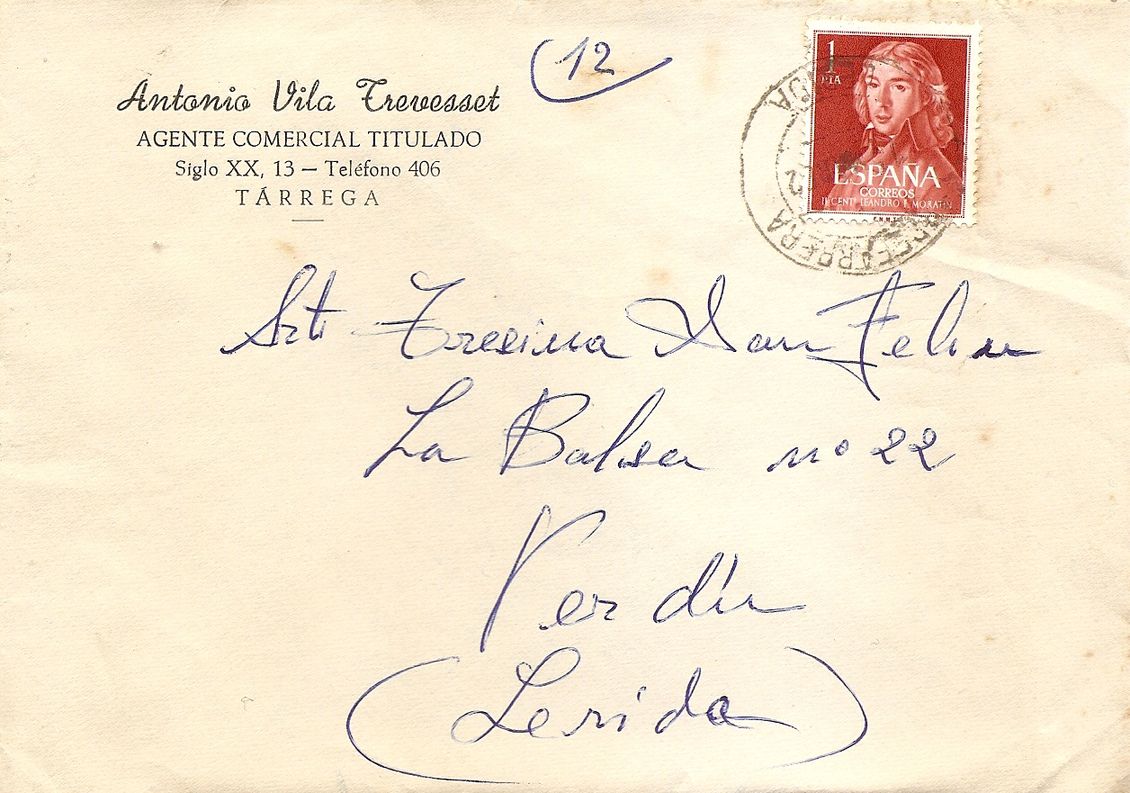 Antonio Vila Trevesset
AGENTE COMERCIAL TITULADO
Siglo XX, 13 — Teléfono 406
TÁRREGA
(12)
1
PTA
ESPAÑA
CORREOS
II CENTº LEANDRO F. MORATIN
Srta Tresina San Feliu
La Balsa nº 22
Verdú
(Lerida)